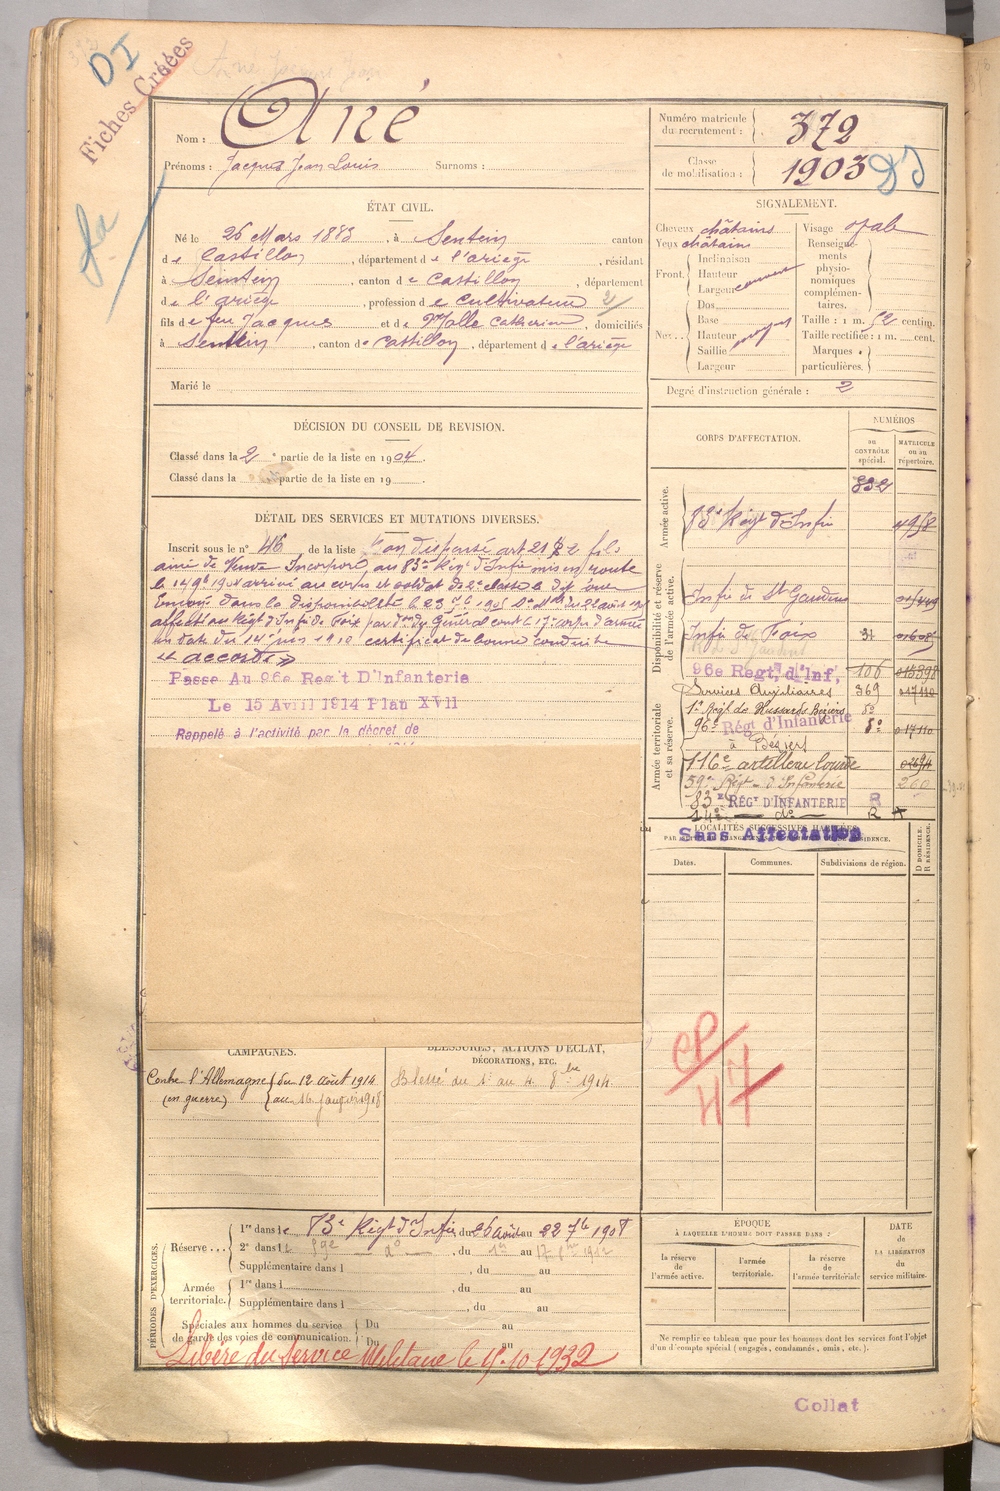 DI
Fiches Créées
Nom : Ané
Prénoms : Jacques Jean Louis Surnoms :
Numéro matricule du recrutement : 372
Classe de mobilisation : 1903
ÉTAT CIVIL.
Né le 26 Mars 1883, à Sentein canton
de Castillon, département de l'ariège, résidant
à Sentein, canton de Castillon, département
de l'ariège, profession de cultivateur
fils de feu Jacques et de Catherine, domiciliés
à Sentein, canton de Castillon, département de l'ariège
Marié le
SIGNALEMENT.
Cheveux châtains
Yeux châtains
Front. Inclinaison
Hauteur
Largeur couvert
Nez... Dos
Base
Hauteur moyen
Saillie
Largeur
Visage oval
Renseignements physionomiques complémentaires.
Taille : 1 m. 52 centim.
Taille rectifiée : 1 m. cent.
Marques particulières.
Degré d'instruction générale : 2
DÉCISION DU CONSEIL DE REVISION.
Classé dans la 2e partie de la liste en 1904.
Classé dans la partie de la liste en 19
DÉTAIL DES SERVICES ET MUTATIONS DIVERSES.
Inscrit sous le n° 46 de la liste Bon dispensé art 21 § 2 fils
ainé de Veuve Incorporé au 83e Régt d'Infie mis en route
le 14 9bre 1904 arrivé au corps et soldat de 2e classe le dit jour
Envoyé dans la disponibilité le 23 7bre 1905
affecté au Régt d'Infie de Foix par on du Général cont le 17e corps d'armée
en date du 14 juin 1910 certificat de bonne conduite
et accordé
Passe Au 96e Reg't D'Infanterie
Le 15 Avril 1914 Plan XVII
Rappelé à l'activité par le décret de
CORPS D'AFFECTATION.
NUMÉROS
au CONTRÔLE spécial.
MATRICULE ou au répertoire.
Armée active.
832
83e Régt d'Infie 4958
Disponibilité et réserve de l'armée active.
Infie de St Gaudens
Infie de Foix 31
96e Regt, d'Inf, 106
Armée territoriale et sa réserve.
Services Auxiliaires 369 017110
1er Régt de Hussards Béziers do
96e Régt d'Infanterie do 017110
à Béziers
116e artillerie lourde
59e Régt d'Infanterie 200
83e RÉGT D'INFANTERIE R
14e — do — R
LOCALITÉS SUCCESSIVES HABITÉES
Sans Affectation
Dates. Communes. Subdivisions de région. D DOMICILE. R RÉSIDENCE.
CAMPAGNES.
Contre l'Allemagne du 12 août 1914
(en guerre) au 16 janvier 1918
BLESSURES, ACTIONS D'ÉCLAT,
DÉCORATIONS, ETC.
Blessé du 1er au 4 8bre 1914.
PÉRIODES D'EXERCICES.
Réserve ... 1re dans le 83e Régt d'Infie, du 26 août au 22 7bre 1908
2e dans le 59e — do —, du au 17 1912
Supplémentaire dans l, du au
Armée territoriale. 1re dans l, du au
Supplémentaire dans l, du au
Spéciales aux hommes du service de garde des voies de communication. Du au
Du au
Libéré du Service Militaire le 15.10.1932
ÉPOQUE
À LAQUELLE L'HOMME DOIT PASSER DANS :
la réserve de l'armée active.
l'armée territoriale.
la réserve de l'armée territoriale
DATE DE LA LIBÉRATION du service militaire.
Ne remplir ce tableau que pour les hommes dont les services font l'objet
d'un décompte spécial (engagés, condamnés, omis, etc.).
Collat